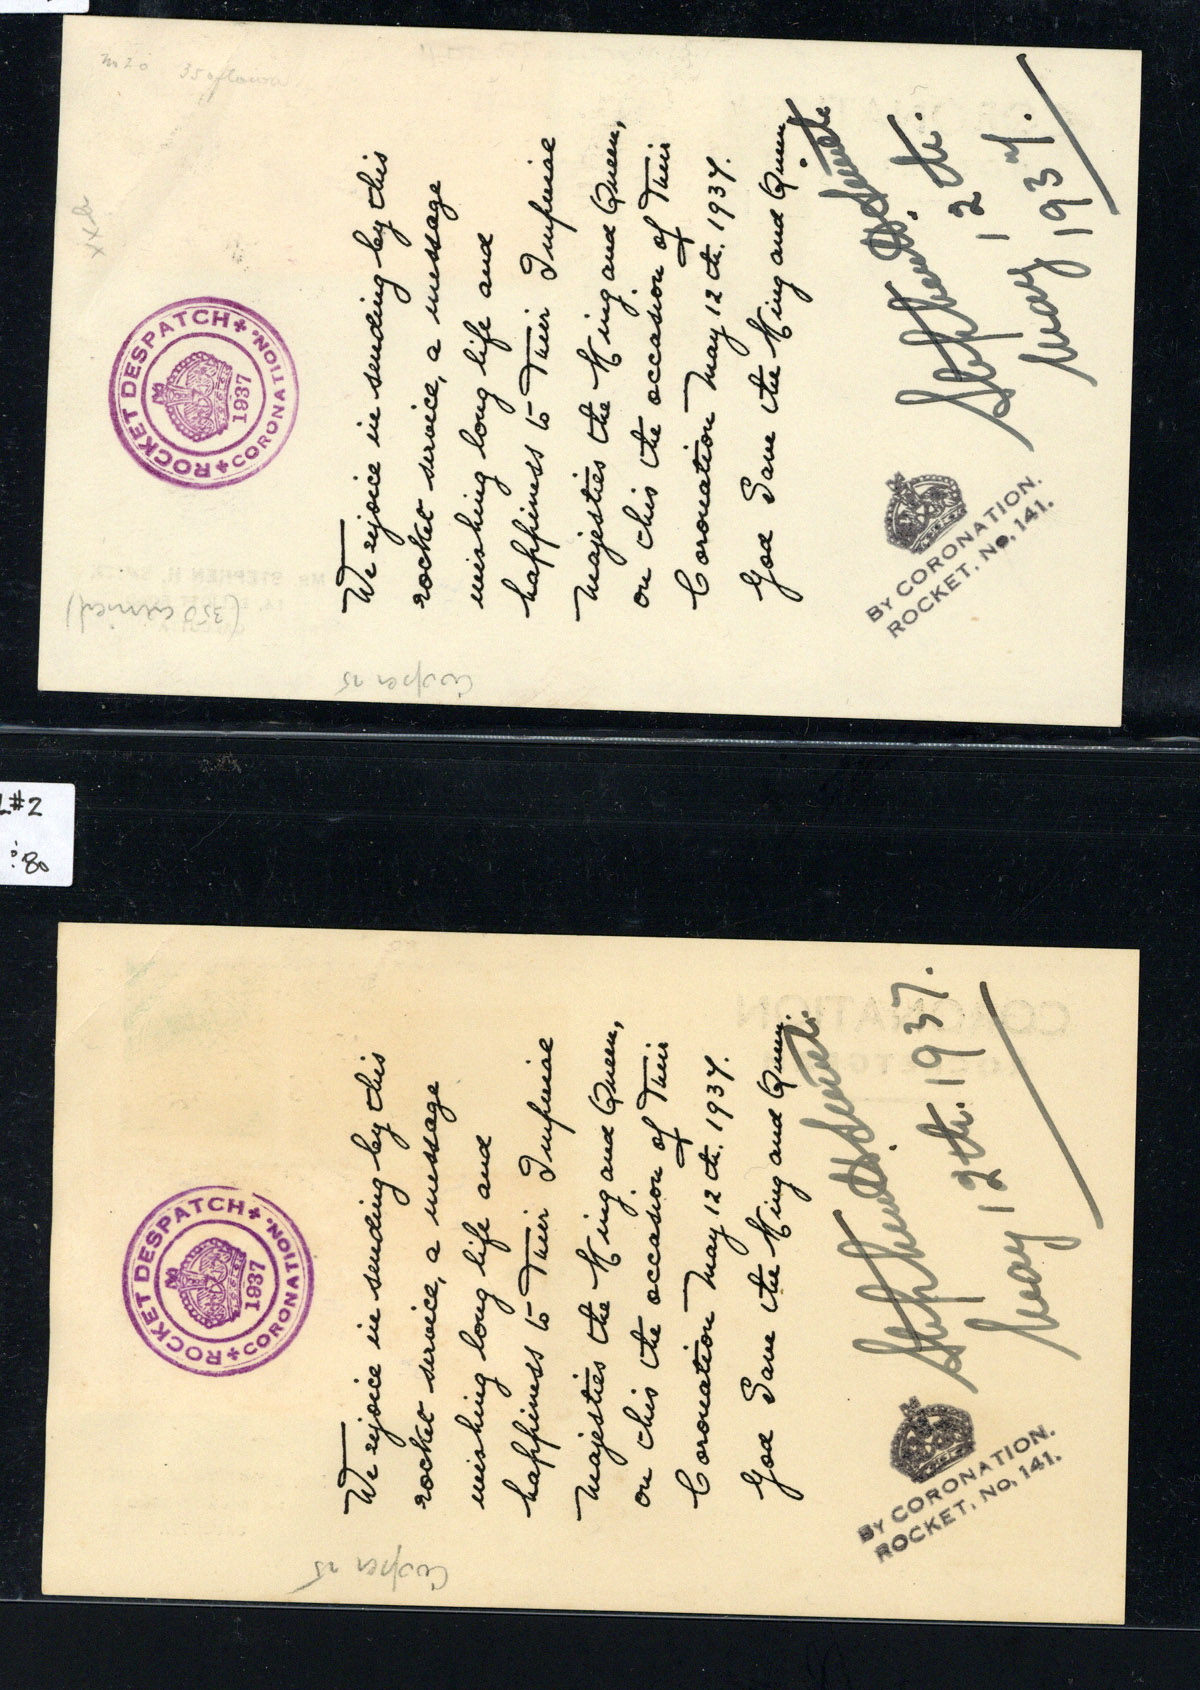 m20 35 oflown
xxb
ROCKET DESPATCH
CORONATION.
1937
We rejoice in sending by this
rocket service, a message
wishing long life and
happiness to Their Imperial
Majesties the King and Queen,
on this the occasion of Their
Coronation May 12th. 1937.
God Save the King and Queen.
Stephen H. Smith.
12th.
May 1937.
BY CORONATION.
ROCKET. No. 141.
MR STEPHEN H. SMITH
(350 carried)
Cooper 25
L#2
:80
CORONATION
ROCKET DESPATCH
CORONATION.
1937
We rejoice in sending by this
rocket service, a message
wishing long life and
happiness to Their Imperial
Majesties the King and Queen,
on this the occasion of Their
Coronation May 12th. 1937.
God Save the King and Queen.
Stephen H. Smith.
May 12th. 1937.
BY CORONATION.
ROCKET. No. 141.
Cooper 25